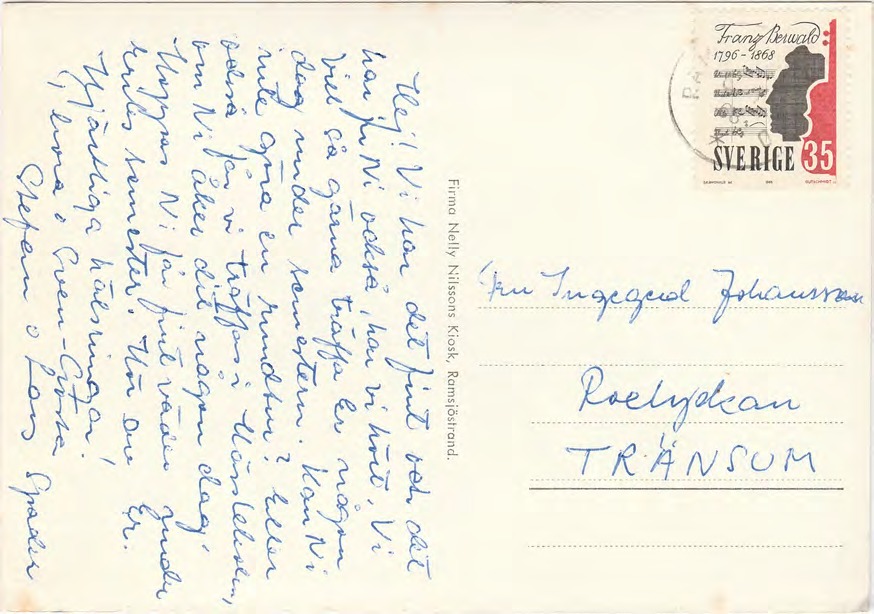 Hej! Vi har det fint och det
har ju Ni också, har vi hört. Vi
vill så gärna träffa Er någon
dag under semestern. Kan Ni
inte göra en rundtur? Eller
också får vi träffas i Hässleholm,
om Ni åker dit någon dag.
Hoppas Ni får fint väder under
Er semester. Hör av Er.
Hjärtliga hälsningar!
Sven-Gösta
Stefan o Lars
Firma Nelly Nilssons Kiosk, Ramsjöstrand.
Franz Berwald
1796-1868
SVERIGE 35
Fru Ingegerd Johansson
TRÄNSUM